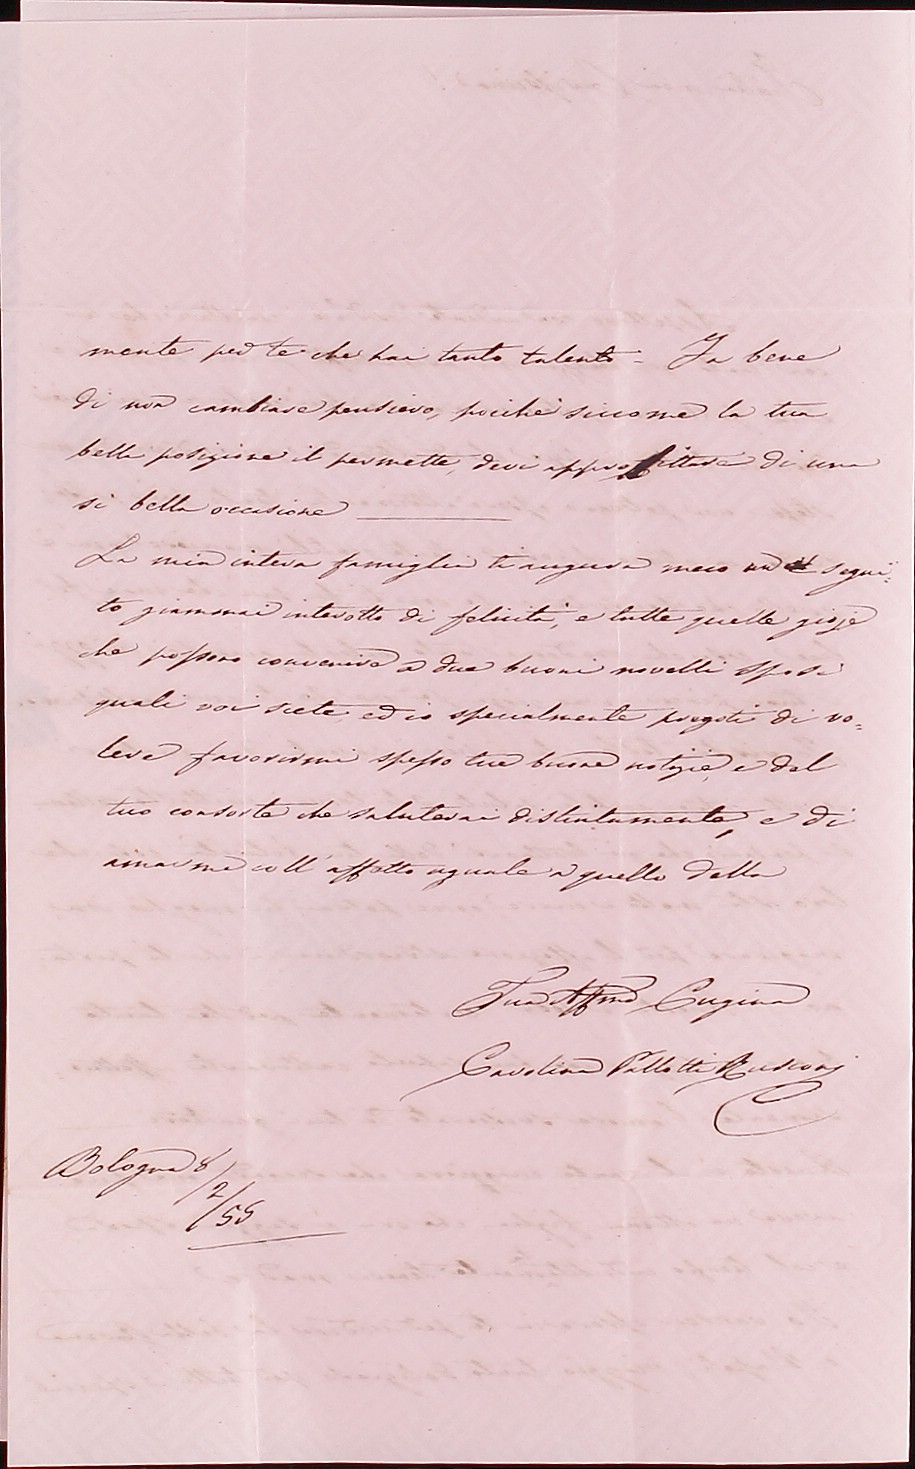 mente per te che hai tanto talento - Fa bene
di non cambiare pensiero, poiche siccome la tua
bella posizione il permette, devi approfittare di una
sì bella occasione
La mia intera famiglia ti augura meco un segui=
to giammai interotto di felicità, e tutte quelle gioje
che possono convenire a due buoni novelli sposi
quali voi siete, ed io specialmente pregoti di vo=
lere favorirmi spesso tue buone notizie, e del
tuo consorte che saluterai distintamente, e di
amarmi coll'affetto uguale a quello della
Tua Affma Cugina
Carolina Pallotti Rusconi
Bologna 8/2/55